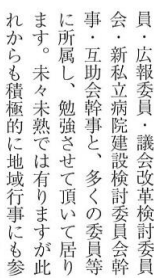 員・広報委員・議会改革検討委員
会・新私立病院建設検討委員会幹
事・互助会幹事と、多くの委員等
に所属し、勉強させて頂いて居り
ます。未々未熟では有りますが此
れからも積極的に地域行事にも参